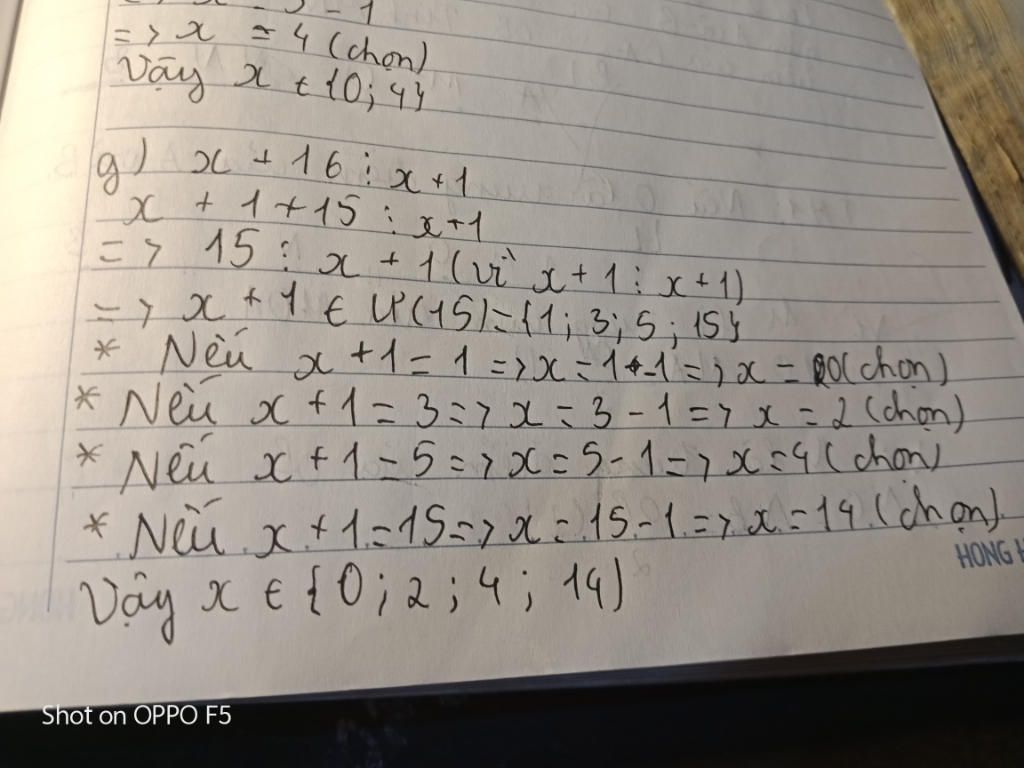 => x = 5 - 1
=> x = 4 (chọn)
Vậy x ∈ {0; 4}
g) x + 16 ⋮ x + 1
x + 1 + 15 ⋮ x + 1
=> 15 ⋮ x + 1 (vì x + 1 ⋮ x + 1)
=> x + 1 ∈ Ư(15) = {1; 3; 5; 15}
* Nếu x + 1 = 1 => x = 1 - 1 => x = 0 (chọn)
* Nếu x + 1 = 3 => x = 3 - 1 => x = 2 (chọn)
* Nếu x + 1 = 5 => x = 5 - 1 => x = 4 (chọn)
* Nếu x + 1 = 15 => x = 15 - 1 => x = 14 (chọn)
HONG
Vậy x ∈ {0; 2; 4; 14}
Shot on OPPO F5